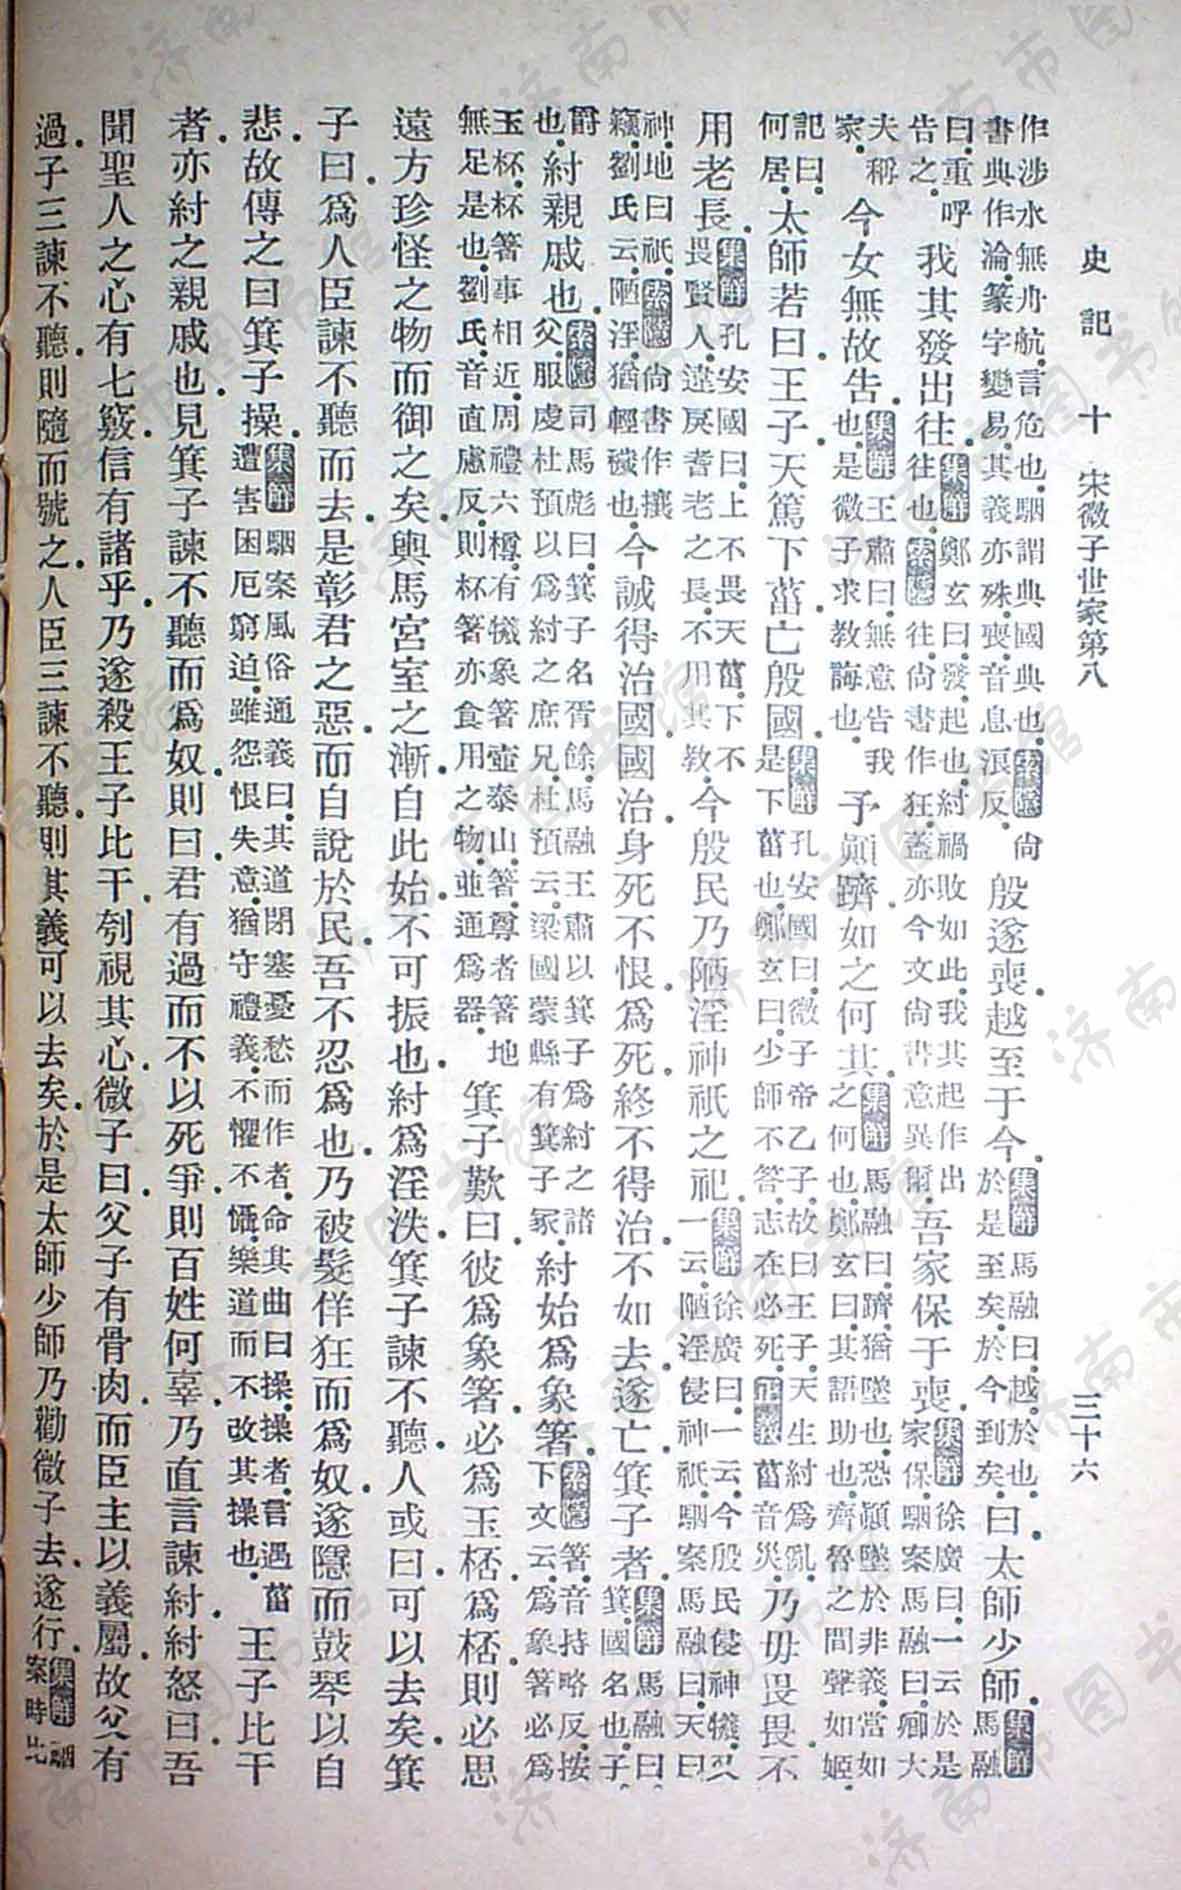 史記　十　宋微子世家第八　三十六
作涉水無舟航言危也駰謂典國典也索隱尙書典作淪篆字變易其義亦殊喪音息浪反殷遂喪越至于今集解馬融曰越於也於是至矣於今到矣曰太師少師集解馬融
曰重呼告之我其發出往集解鄭玄曰發起也紂禍敗如此我其起作出往也索隱往尙書作狂蓋亦今文尙書意異爾吾家保于喪集解徐廣曰一云於是家保駰案馬融曰卿大
夫稱家今女無故告集解王肅曰無意告我也是微子求敎誨也予顚躋如之何其集解馬融曰躋猶墜也恐顚墜於非義當如之何也鄭玄曰其語助也齊魯之間聲如姬
記曰何居太師若曰王子天篤下菑亡殷國集解孔安國曰微子帝乙子故曰王子天生紂爲亂是下菑也鄭玄曰少師不答志在必死正義菑音災乃毋畏畏不
用老長集解孔安國曰上不畏天菑下不畏賢人違戾耆老之長不用其敎今殷民乃陋淫神祇之祀集解徐廣曰一云今殷民侵神犧又一云陋淫侵神祇駰案馬融曰天曰
神地曰祇索隱尙書作攘竊劉氏云陋淫猶輕穢也今誠得治國國治身死不恨爲死終不得治不如去遂亡箕子者集解馬融曰箕國名也子
爵也紂親戚也索隱司馬彪曰箕子名胥餘馬融王肅以箕子爲紂之諸父服虔杜預以爲紂之庶兄杜預云梁國蒙縣有箕子冢紂始爲象箸索隱箸音持略反按下文云爲象箸必爲
玉杯杯箸事相近周禮六樽有犧象著壺泰山著尊者著地無足是也劉氏音直慮反則杯箸亦食用之物並通爲器箕子歎曰彼爲象箸必爲玉桮爲桮則必思
遠方珍怪之物而御之矣輿馬宮室之漸自此始不可振也紂爲淫泆箕子諫不聽人或曰可以去矣箕
子曰爲人臣諫不聽而去是彰君之惡而自說於民吾不忍爲也乃被髮佯狂而爲奴遂隱而鼓琴以自
悲故傳之曰箕子操集解駰案風俗通義曰其道閉塞憂愁而作者命其曲曰操操者言遇菑遭害困厄窮迫雖怨恨失意猶守禮義不懼不懾樂道而不改其操也王子比干
者亦紂之親戚也見箕子諫不聽而爲奴則曰君有過而不以死爭則百姓何辜乃直言諫紂紂怒曰吾
聞聖人之心有七竅信有諸乎乃遂殺王子比干刳視其心微子曰父子有骨肉而臣主以義屬故父有
過子三諫不聽則隨而號之人臣三諫不聽則其義可以去矣於是太師少師乃勸微子去遂行集解駰案時比